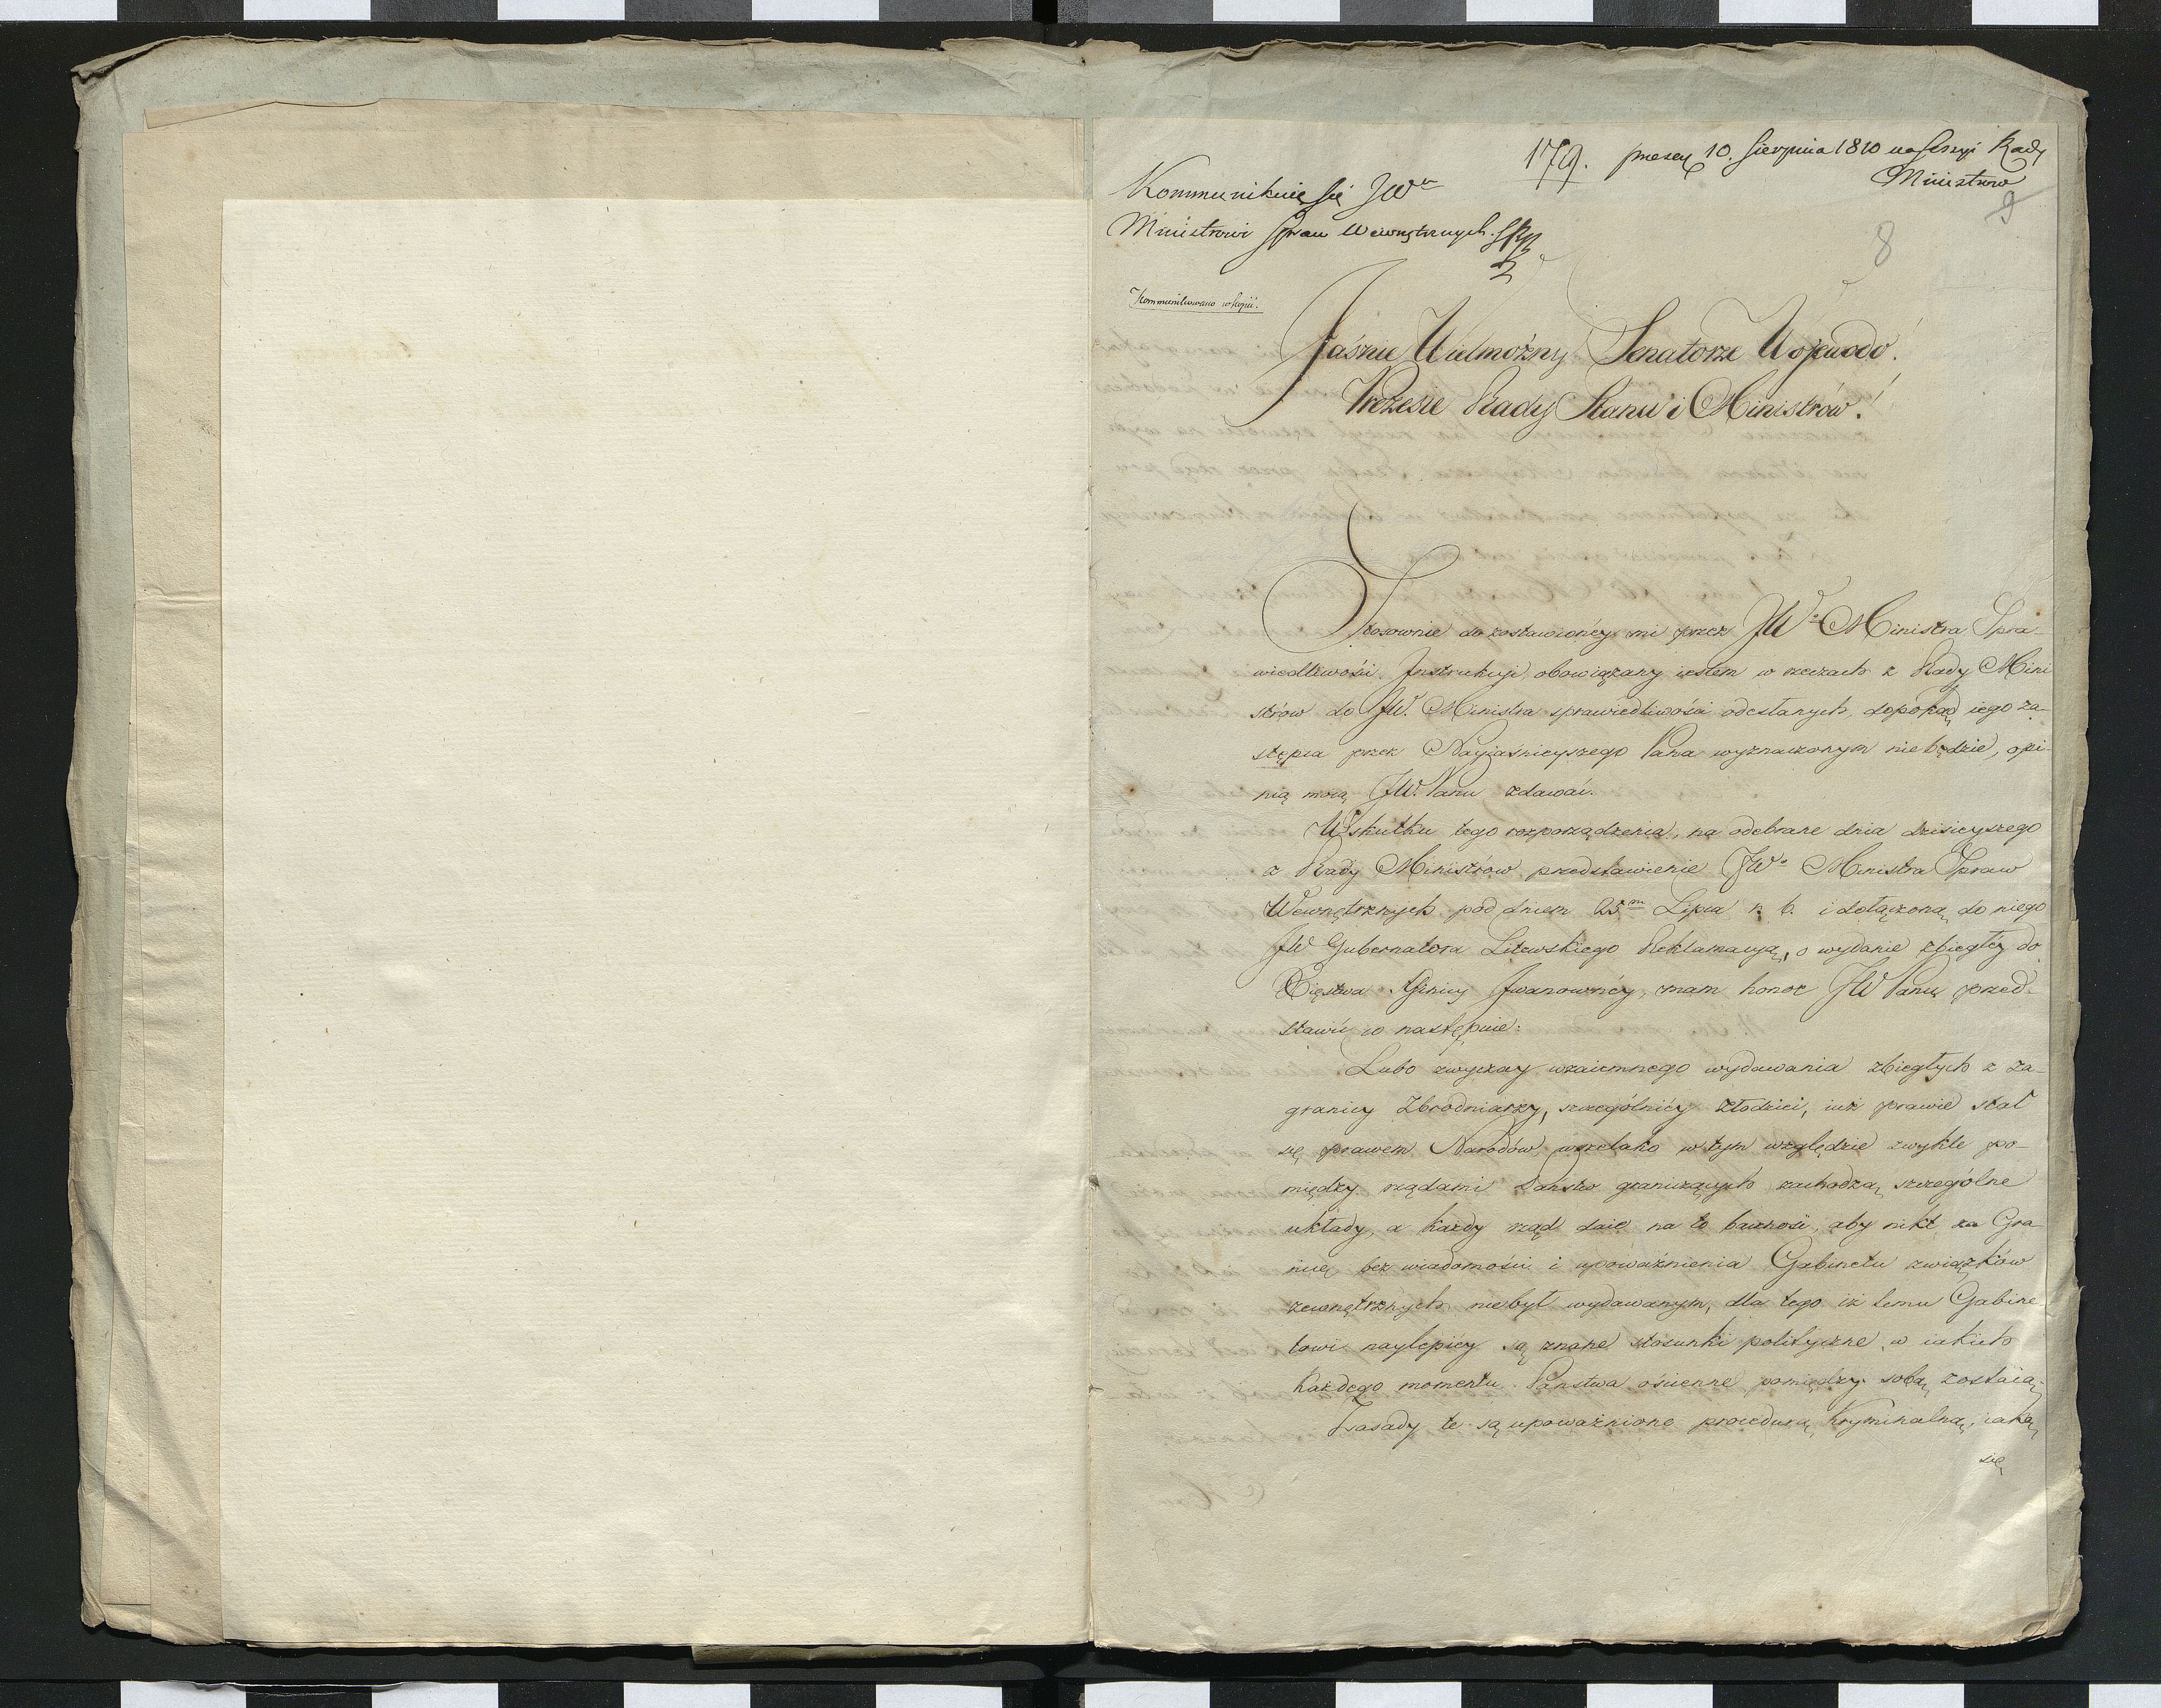 179. presen 10. Sierpnia 1810 na sessyi Rady
Ministrow
9
8
Kommunikuie się JWu
Ministrowi Spraw Wewnętrznych.
Kommunikowano w kopii.
Jaśnie Wielmożny Senatorze Wojewodo!
Prezesie Rady Stanu i Ministrów!
Stosownie do zostawionéy mi przez JWo Ministra Spra-
wiedliwości Instrukcyi obowiązany iestem w rzeczach z Rady Mini
strów do JW. Ministra sprawiedliwości odesłanych, dopokąd iego za-
stępca przez Nayiaśnieyszego Pana wyznaczonym niebędzie, opi-
nią moią JW. Panu zdawać.
W skutku tego rozporządzenia, na odebrane dnia dzisieyszego
z Rady Ministrów przedstawienie JWo Ministra Spraw
Wewnętrznych pod dniem 25m Lipca r. b. i dołączoną do niego
JW Gubernatora Litewskiego Reklamacyą, o wydanie zbiegłey do
Xięstwa Iwanownéy, mam honor JW Panu przed-
stawić co następuie:
Lubo zwyczay wzaiemnego wydawania zbiegłych z za-
granicy Zbrodniarzy, szczególniéy złodziei, iuż prawie stał
się prawem Narodów wszelako w tym względzie zwykle po-
między rządami Państw graniczących zachodzą szczególne
układy, a każdy rząd daie na to baczność, aby nikt za Gra-
nicę bez wiadomości i upoważnienia Gabinetu związków
zewnętrznych niebył wydawanym, dla tego iż temu Gabine
towi naylepiéy są znane stosunki polityczne w iakich
każdego momentu Państwa ościenne pomiędzy sobą zostaią.
Zasady te są upoważnione procedurą kryminalną, iaką
się